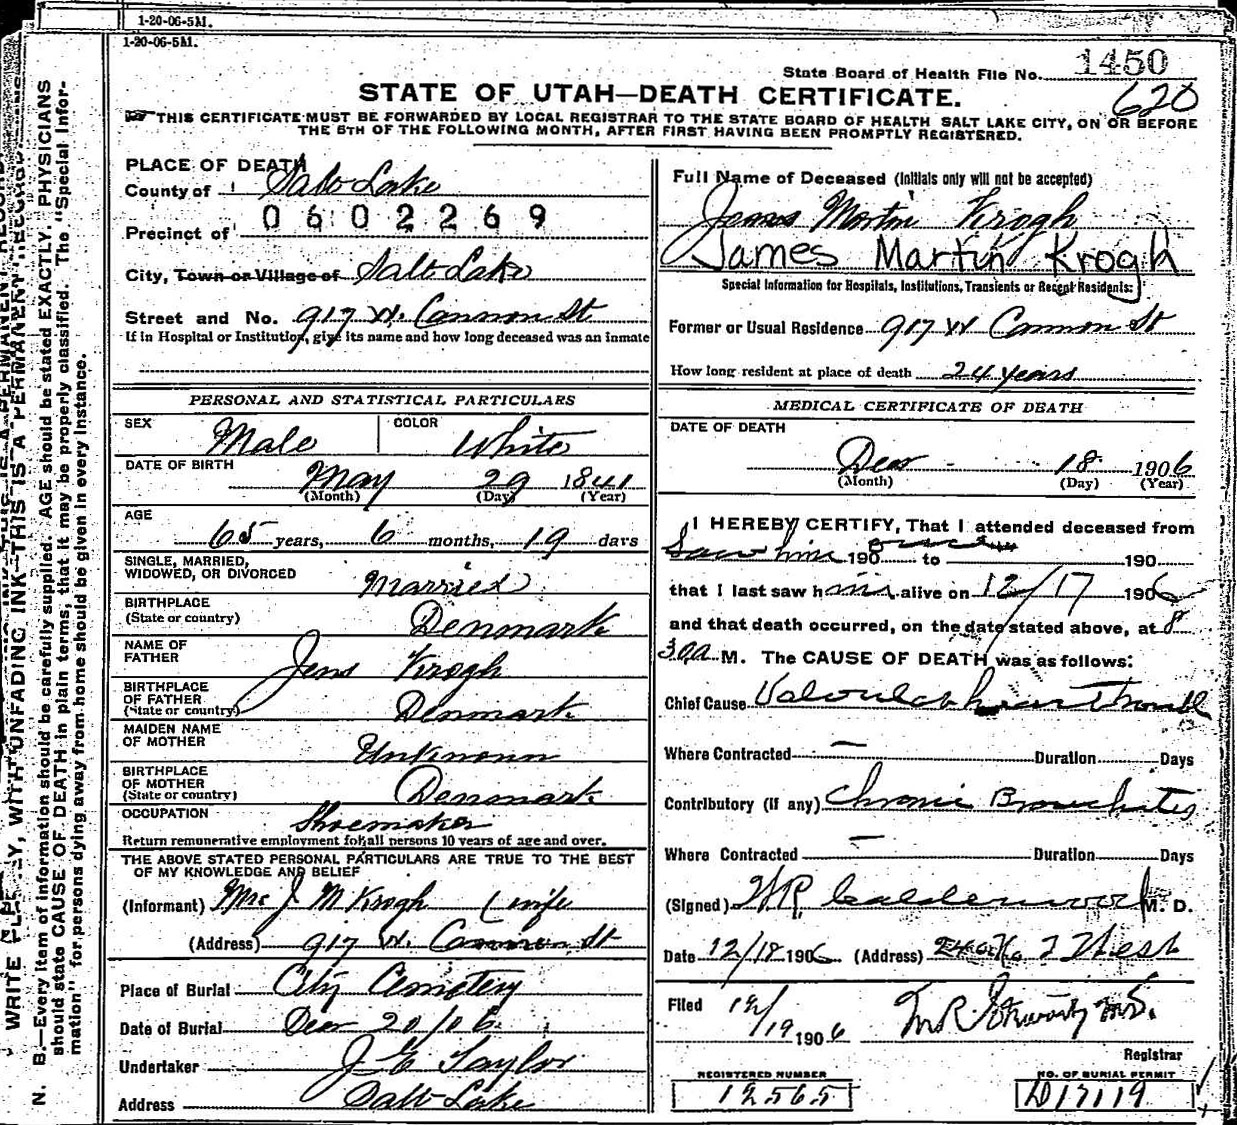 1-20-06-5M.
1-20-06-5M.
State Board of Health File No. 1450
620
STATE OF UTAH—DEATH CERTIFICATE.
THIS CERTIFICATE MUST BE FORWARDED BY LOCAL REGISTRAR TO THE STATE BOARD OF HEALTH SALT LAKE CITY, ON OR BEFORE
THE 5TH OF THE FOLLOWING MONTH, AFTER FIRST HAVING BEEN PROMPTLY REGISTERED.
PLACE OF DEATH
County of Salt Lake
0602269
Precinct of
City, Town or Village of Salt Lake
Street and No. 917 W. Cannon St
If in Hospital or Institution, give its name and how long deceased was an inmate
PERSONAL AND STATISTICAL PARTICULARS
SEX Male COLOR White
DATE OF BIRTH
May 29 1841
(Month) (Day) (Year)
AGE
65 years, 6 months, 19 days
SINGLE, MARRIED,
WIDOWED, OR DIVORCED Married
BIRTHPLACE
(State or country) Denmark
NAME OF
FATHER Jens Krogh
BIRTHPLACE
OF FATHER
(State or country) Denmark
MAIDEN NAME
OF MOTHER Unknown
BIRTHPLACE
OF MOTHER
(State or country) Denmark
OCCUPATION
Shoemaker
Return remunerative employment for all persons 10 years of age and over.
THE ABOVE STATED PERSONAL PARTICULARS ARE TRUE TO THE BEST
OF MY KNOWLEDGE AND BELIEF
(Informant) Mrs J M Krogh (wife
(Address) 917 W. Cannon St
Place of Burial City Cemetery
Date of Burial Dec 20/06.
Undertaker J. E Taylor
Address Salt Lake
Full Name of Deceased (Initials only will not be accepted)
Jens Martin Krogh
James Martin Krogh
Special Information for Hospitals, Institutions, Transients or Recent Residents:
Former or Usual Residence 917 W Cannon St
How long resident at place of death 24 years
MEDICAL CERTIFICATE OF DEATH
DATE OF DEATH
Dec 18 1906
(Month) (Day) (Year)
I HEREBY CERTIFY, That I attended deceased from
Saw him 190 once to 190
that I last saw him alive on 12/17 1906
and that death occurred, on the date stated above, at 8
30 a M. The CAUSE OF DEATH was as follows:
Chief Cause Valvular heart Trouble
Where Contracted — Duration Days
Contributory (if any) Chronic Bronchitis
Where Contracted — Duration Days
(Signed) W.R. Calderwood M. D.
Date 12/18 1906 (Address)
Filed 12/19 1906
Registrar
REGISTERED NUMBER
12565
NO. OF BURIAL PERMIT
D17119
N. B.—Every item of information should be carefully supplied. AGE should be stated EXACTLY. PHYSICIANS
should state CAUSE OF DEATH in plain terms, that it may be properly classified. The "Special Infor-
mation" for persons dying away from home should be given in every instance.
WRITE PLAINLY, WITH UNFADING INK—THIS IS A PERMANENT RECORD